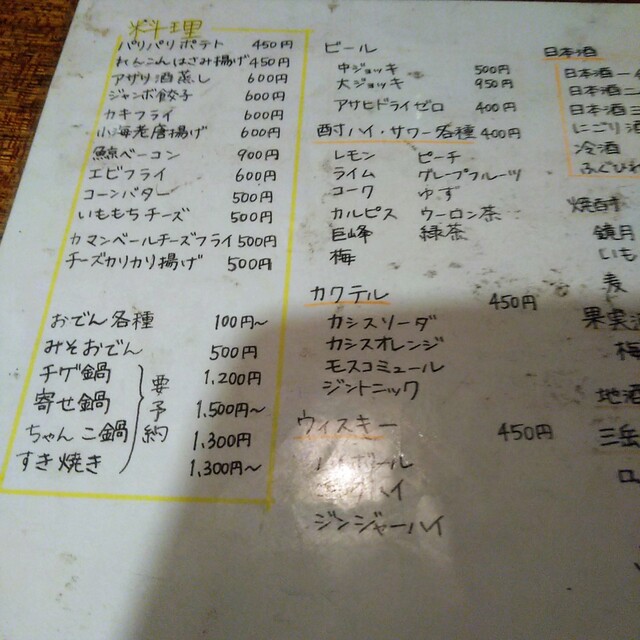 料理
パリパリポテト 450円
れんこんはさみ揚げ 450円
アサリ酒蒸し 600円
ジャンボ餃子 600円
カキフライ 600円
小海老唐揚げ 600円
鯨ベーコン 900円
エビフライ 600円
コーンバター 500円
いももちチーズ 500円
カマンベールチーズフライ 500円
チーズカリカリ揚げ 500円
おでん各種 100円~
みそおでん 500円
チゲ鍋 1,200円
寄せ鍋 1,500円~
ちゃんこ鍋 1,300円
すき焼き 1,300円~
要予約
ビール
中ジョッキ 500円
大ジョッキ 950円
アサヒドライゼロ 400円
酎ハイ・サワー各種 400円
レモン ピーチ
ライム グレープフルーツ
コーク ゆず
カルピス ウーロン茶
巨峰 緑茶
梅
カクテル 450円
カシスソーダ
カシスオレンジ
モスコミュール
ジントニック
ウィスキー 450円
ハイボール
ジンジャーハイ
日本酒
日本酒一
日本酒二
日本酒三
にごり酒
冷酒
ふぐひれ
焼酎
鏡月
いも
麦
果実酒
梅
地酒
三岳